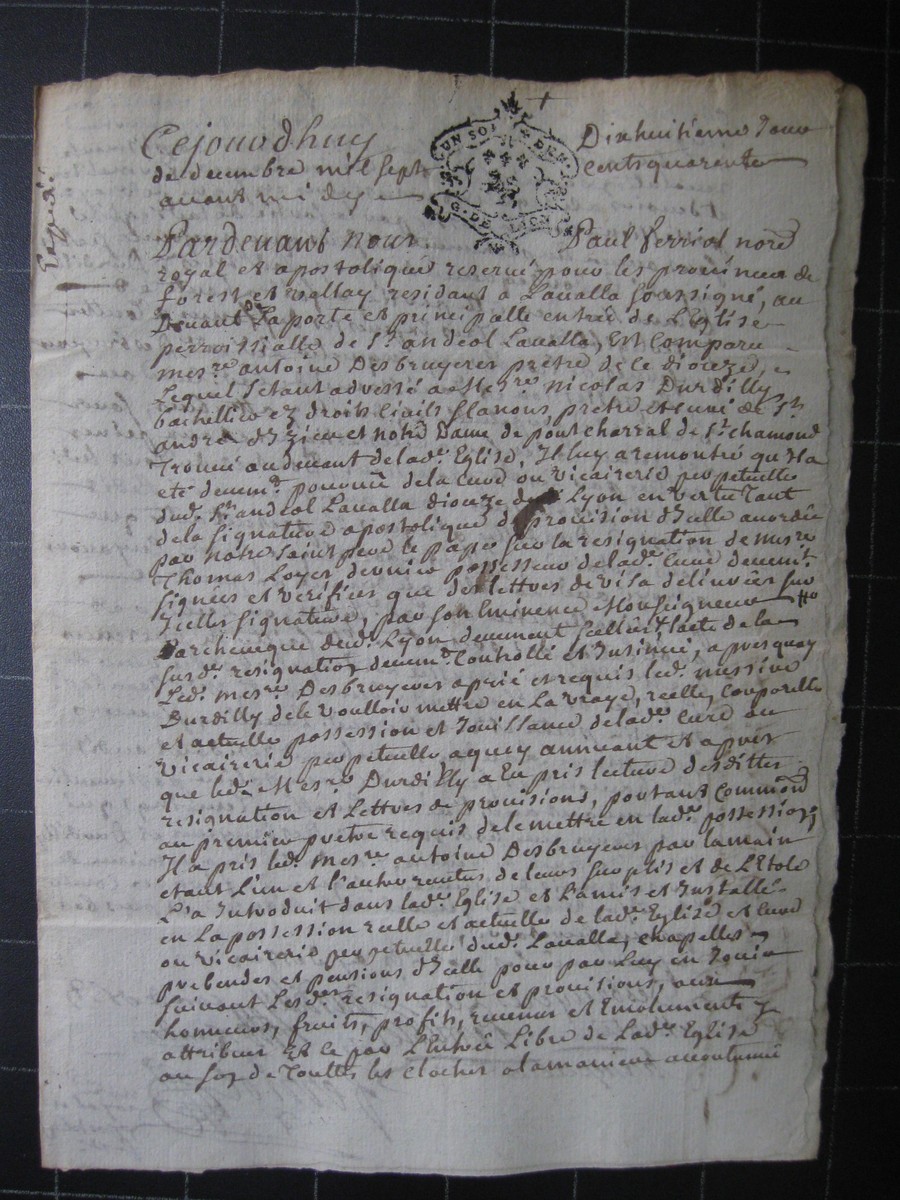 Expedié.
Cejourdhuy Dixhuitieme Jour
de decembre mil sept Centsquarente
avant midy
UN SOL DEN.
G. DE LION
Pardevant nous Paul ferriol nore
royal et apostolique reservé pour les provinces de
forest et vallay residant a Lavalla soussigné, au
Devant de La porte et principalle entrée de L'Eglise
perroissialle de St andeol Lavalla, Est Comparu
mesre antoine Desbruyeres prêtre de ce dioceze,
Lequel s'étant adressé a Mesre nicolas Durdilly
bachellier ez droits Civils & Canons, prêtre et curé de St
andré d'Izieu et notre Dame de pont charral de St chamond
Trouvé audevant de lade Eglise, Il luy a remontré qu'Il a
eté deuemt pourvu de la Cure ou vicairerie perpetuelle
dud. St andeol Lavalla dioceze de Lyon en vertu Tant
de la signature apostolique de provision d'Icelle accordée
par notre saint pere le pape sur la resignation de mesre
Thomas Loyer dernier possesseur de lade Cure deuemt
signées et verifiées que des lettres de visa delivrées sur
Icelle signature, par son Eminence Monseigneur
L'archeveque dud. Lyon deuement scellées & l'acte de la
susde resignation deuemt Controllé et Insinué, apresquoy
Led. mesre Desbruyeres a prié et requis led. messire
Durdilly de le voulloir mettre en La vraye, reelle, Corporelle
et actuelle possession et Jouissance de lade Cure ou
vicairerie perpetuelle a quoy annuant et apres
que led. Mesre Durdilly a Eu pris lecture desdittes
resignation et Lettres de provisions, portant Commond
au premier prêtre requis de le mettre en lade possession;
Il a pris led. mesre antoine Desbruyeres par la main
etant L'un et l'autre revetus de leurs surplis et de L'Etole
L'a Introduit dans lade Eglise et L'a mis et Installé
en La possession reelle et actuelle de lade Eglise et Cure
ou vicairerie perpetuelle dud. Lavalla, chapelles
prebendes et pensions d'Icelle pour par Luy en Jouir
suivant Lesdes resignation et provisions, aux
honneurs, fruits, profits, revenus et Emoluments y
attribues Et ce par L'Entrée Libre de Lade Eglise
au son de Touttes les cloches a la maniere accoutumée